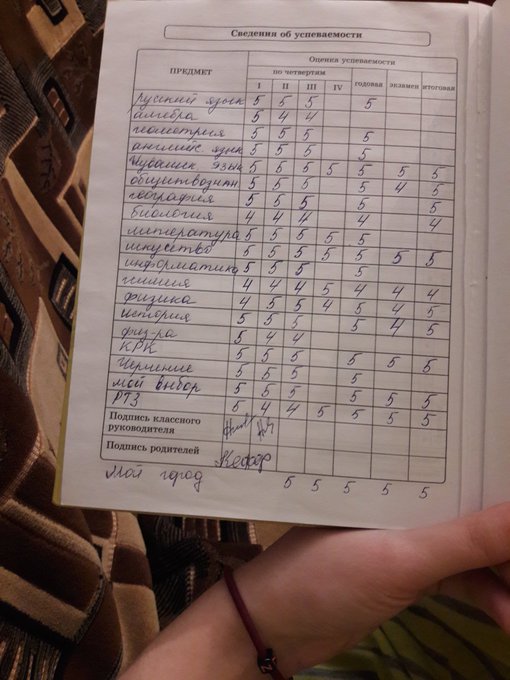 Сведения об успеваемости
ПРЕДМЕТ
Оценка успеваемости
по четвертям
I II III IV годовая экзамен итоговая
русский язык 5 5 5 5
алгебра 5 4 4
геометрия 5 5 5 5
английс. язык 5 5 5 5
Чувашск язык 5 5 5 5 5 5 5
обществознан 5 5 5 5 4 5
география 5 5 5 5 5
биология 4 4 4 4 4
литература 5 5 5 5 5
искусство 5 5 5 5 5 5 5
информатика 5 5 5 5
химия 4 4 4 5 4 4 4
физика 4 5 5 4 5 4 5
история 5 5 5 5 4 5
физ-ра 5 4 4
КРК 5 5 5 5 5 5
Черчение 5 5 5 5
мой выбор 5 5 5 5 5 5
РТЗ 5 4 4 5 5 5 5
Подпись классного
руководителя
Подпись родителей
Мой город 5 5 5 5 5